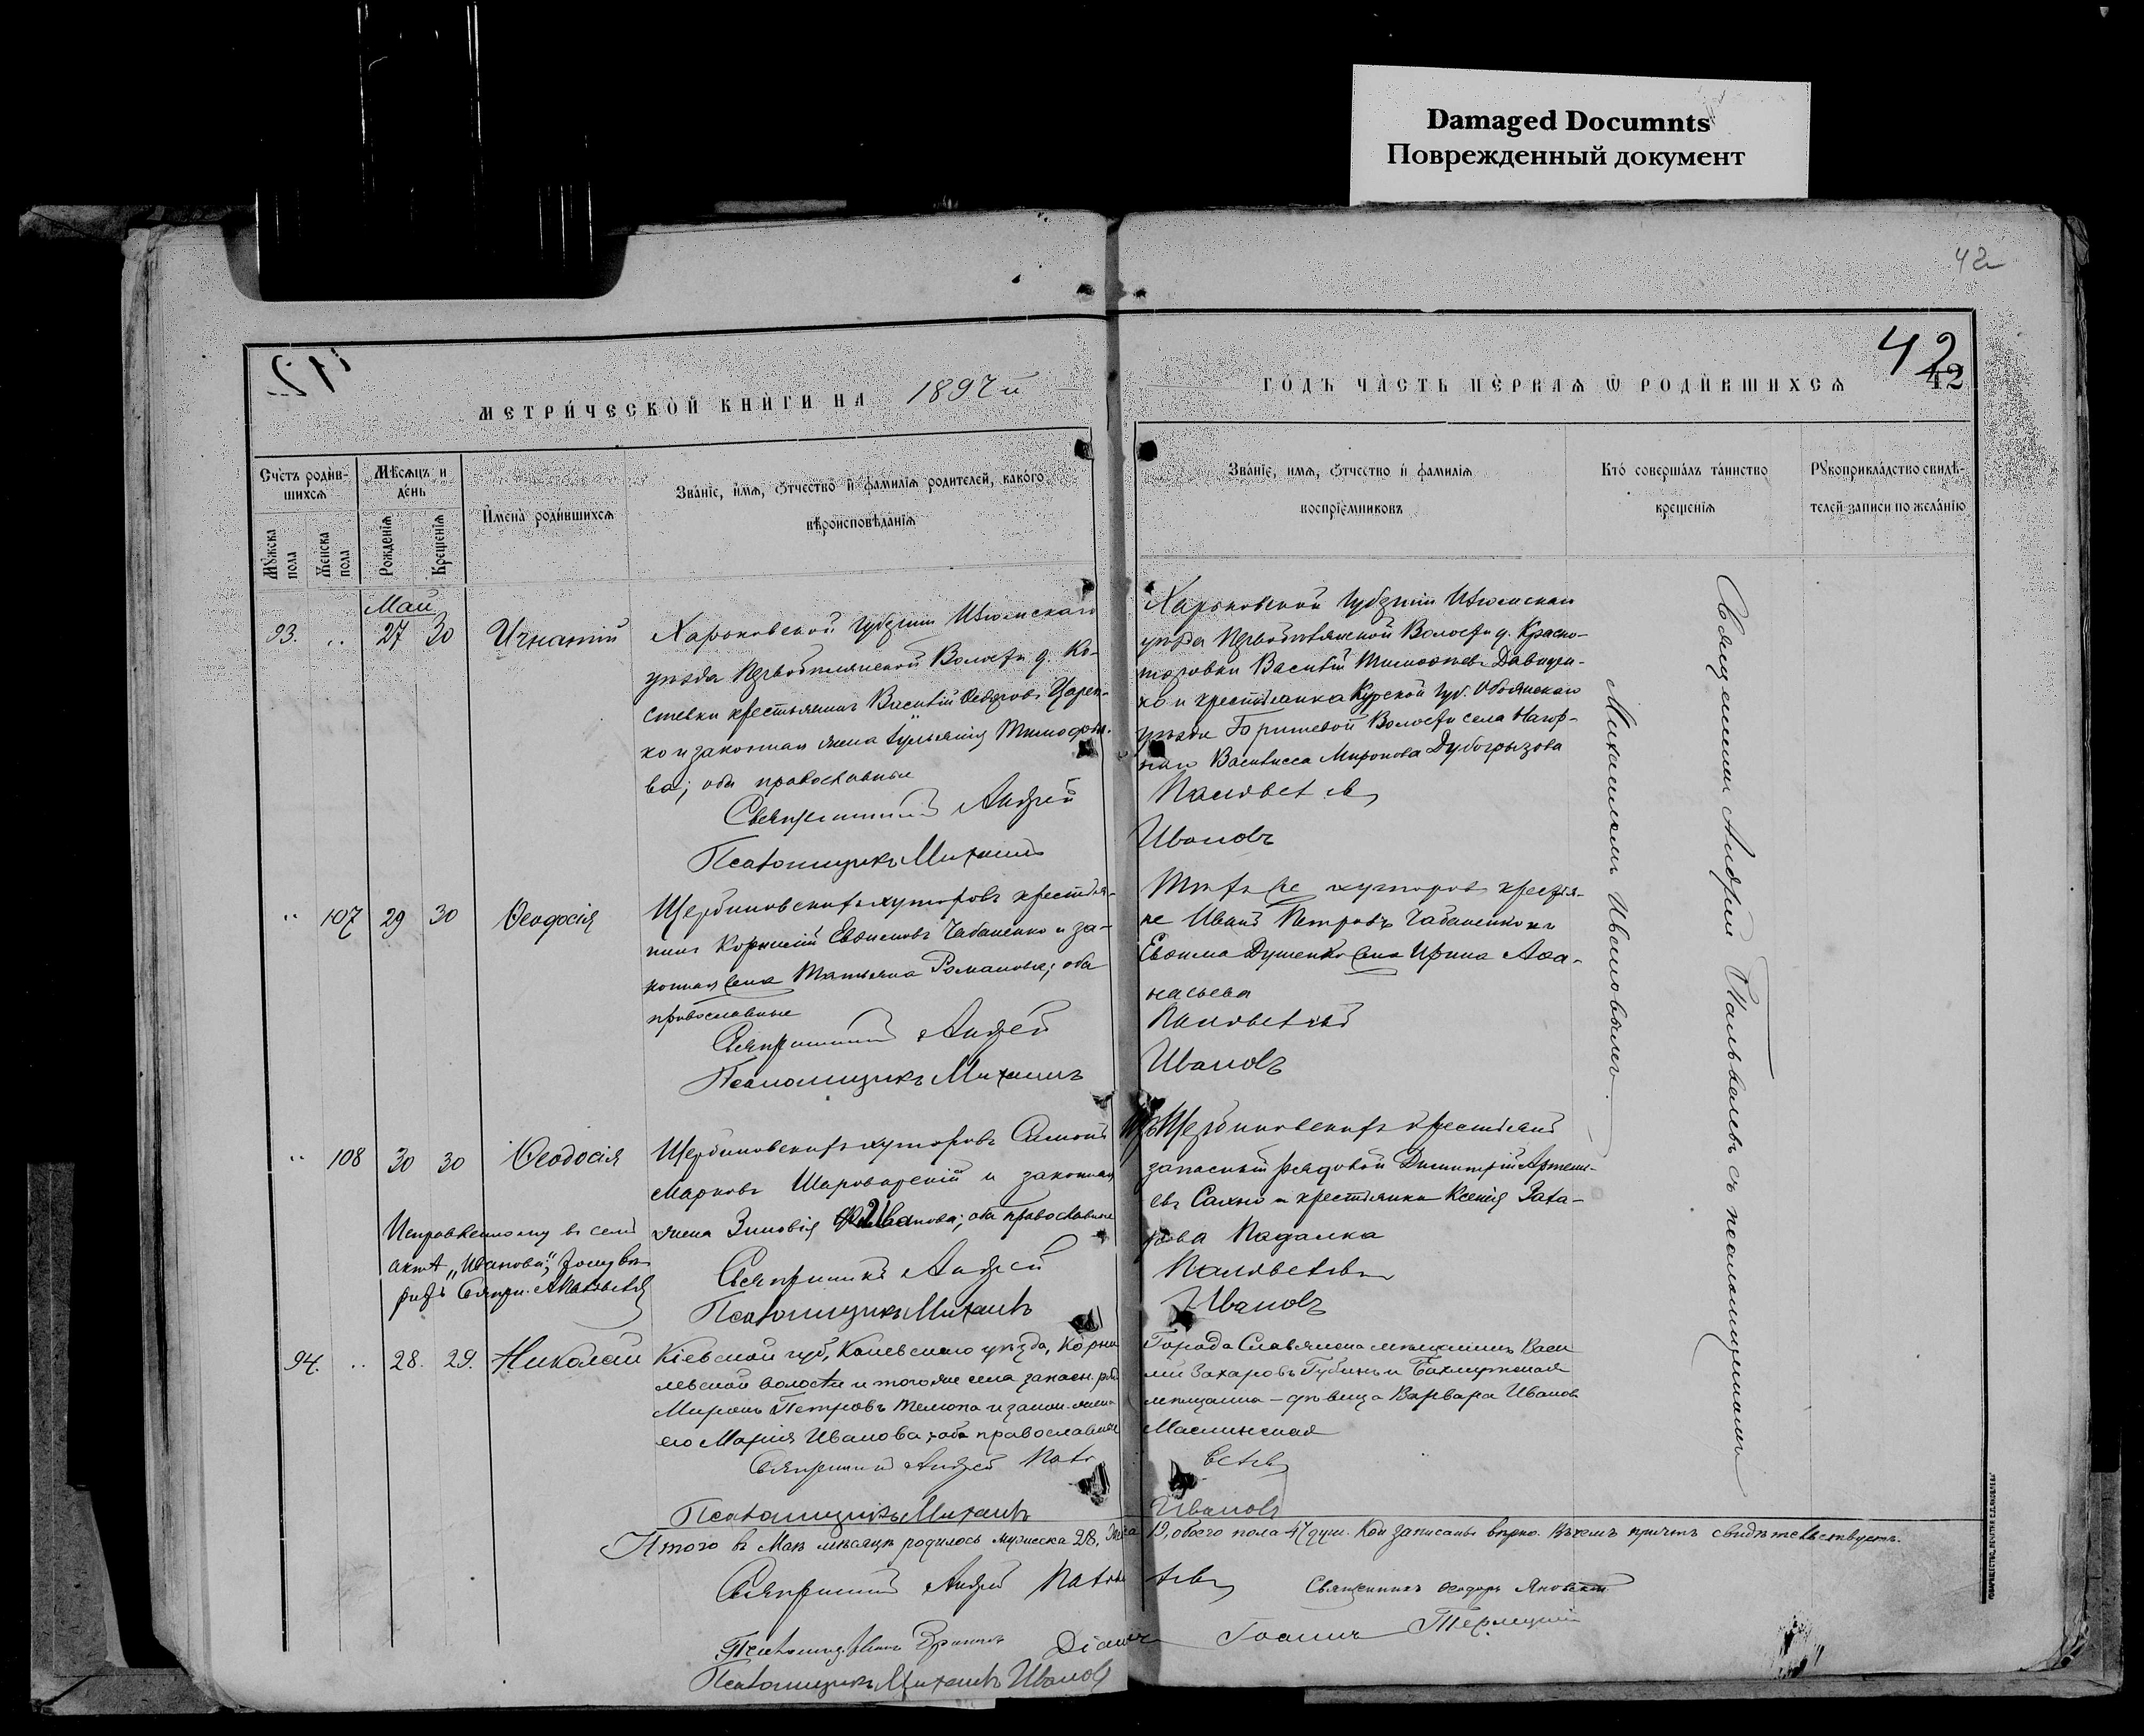 Damaged Documnts
Поврежденный документ
42
42
42
МЕТРИ́ЧЕСКОЙ КНИ́ГИ НА 1897й
ГО́ДЪ ЧА́СТЬ ПЕ́РВАѦ Ѿ РОДИ́ВШИХСѦ
Сче́тъ роди́в-
шихсѧ
Мꙋ́жска пола
Же́нска пола
Мѣ́сѧцъ и
де́нь
Рожде́нїѧ
Креще́нїѧ
И҆мена̀ роди́вшихсѧ
Зва́нїе, и҆́мѧ, ѻ҆́тчество и҆ фами́лїѧ роди́телей, како́го
вѣроисповѣ́данїѧ
Зва́нїе, и҆́мѧ, ѻ҆́тчество и҆ фами́лїѧ
воспрїе́мниковъ
Кто́ соверша́лъ та́инство
креще́нїѧ
Рꙋкоприкла́дство свидѣ́-
телей записи по жела́нїю
Май
93. " 27 30 Игнатій
Харьковской губерніи Изюмскаго
уѣзда Волости д. Ко-
стевки крестьянинъ Василій Ѳедоровъ Царен-
ко и законная жена Іульянія Тимофѣе-
ва; оба православные
Священникъ Андрей
Псаломщикъ Михаилъ
Харьковской губерніи Изюмскаго
уѣзда Волости д. Красно-
торовки Василій Тимоѳеевъ Давиден-
ко и крестьянка Курской губ. Обоянскаго
уѣзда Волости села Нагор-
наго Василисса Миронова Дубогрызова
Ивановъ
" 107 29 30 Ѳеодосія
Щербиновскихъ хуторовъ крестья-
нинъ Корнилій Евѳимовъ Чабаненко и за-
конная жена Татьяна Романова; оба
православные
Священникъ Андрей
Псаломщикъ Михаилъ
Тѣхъ же хуторовъ крестья-
не Иванъ Петровъ Чабаненко и
Евѳима Душенко жена Ирина Аѳа-
насьева
Ивановъ
" 108 30 30 Ѳеодосія
Щербиновскихъ хуторовъ Симонъ
Марковъ Шароварскій и законная
жена Зиновія Иванова; оба православные
Священникъ Андрей
Псаломщикъ Михаилъ
Исправленному въ семъ
актѣ „Иванова“,
Щербиновскихъ крестьянъ
запасный рядовой Димитрій Артемь-
евъ Сахно и крестьянка Ксенія
Падалка
Ивановъ
94. " 28. 29. Николай
Кіевской губ., Каневскаго уѣзда, Корни-
левской волости и того же села запасн. ряд.
Миронъ Петровъ Телюпа и закон. жена
его Марія Иванова, оба православные
Священникъ Андрей
Псаломщикъ Михаилъ
Города Славянска мѣщанинъ Васи-
лій Захаровъ Губинъ и Бахмутская
мѣщанка – дѣвица Варвара Иванова
Маслинская
Ивановъ
Священникомъ Андреемъ съ псаломщикомъ
Михаиломъ Ивановымъ
Итого въ Маѣ мѣсяцѣ родилось мужеска 28, женска 19, обоего пола 47 душ. Кои записаны вѣрно. Въ чемъ причтъ свидѣтельствуетъ.
Священникъ Андрей
Священникъ Ѳеодоръ Яновскій
Іоаннъ Терлецкій
Псаломщикъ Михаилъ Ивановъ